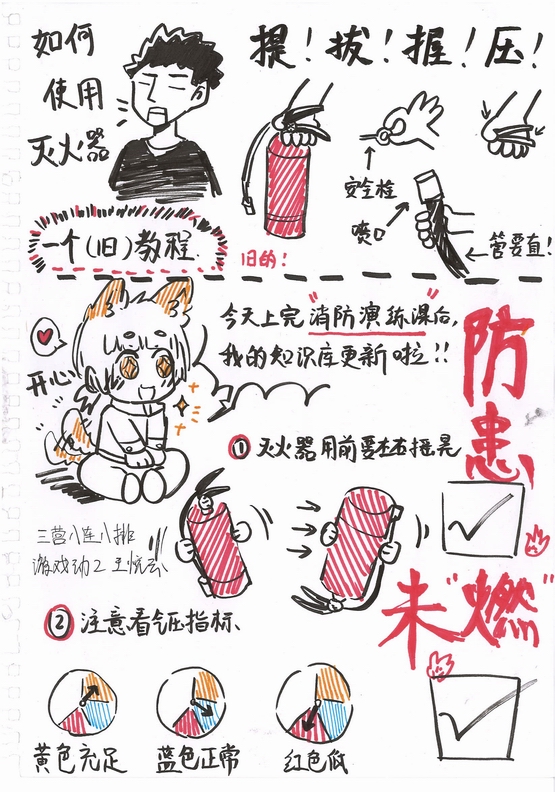 如何
使用
灭火器
提！拔！握！压！
安全栓
喷口
管要直！
一个(旧)教程
旧的！
今天上完"消防演练课"后，
我的知识库更新啦!!
开心
防患
未"燃"
① 灭火器用前要左右摇晃
三营八连八排
② 注意看气压指标
黄色充足
蓝色正常
红色低